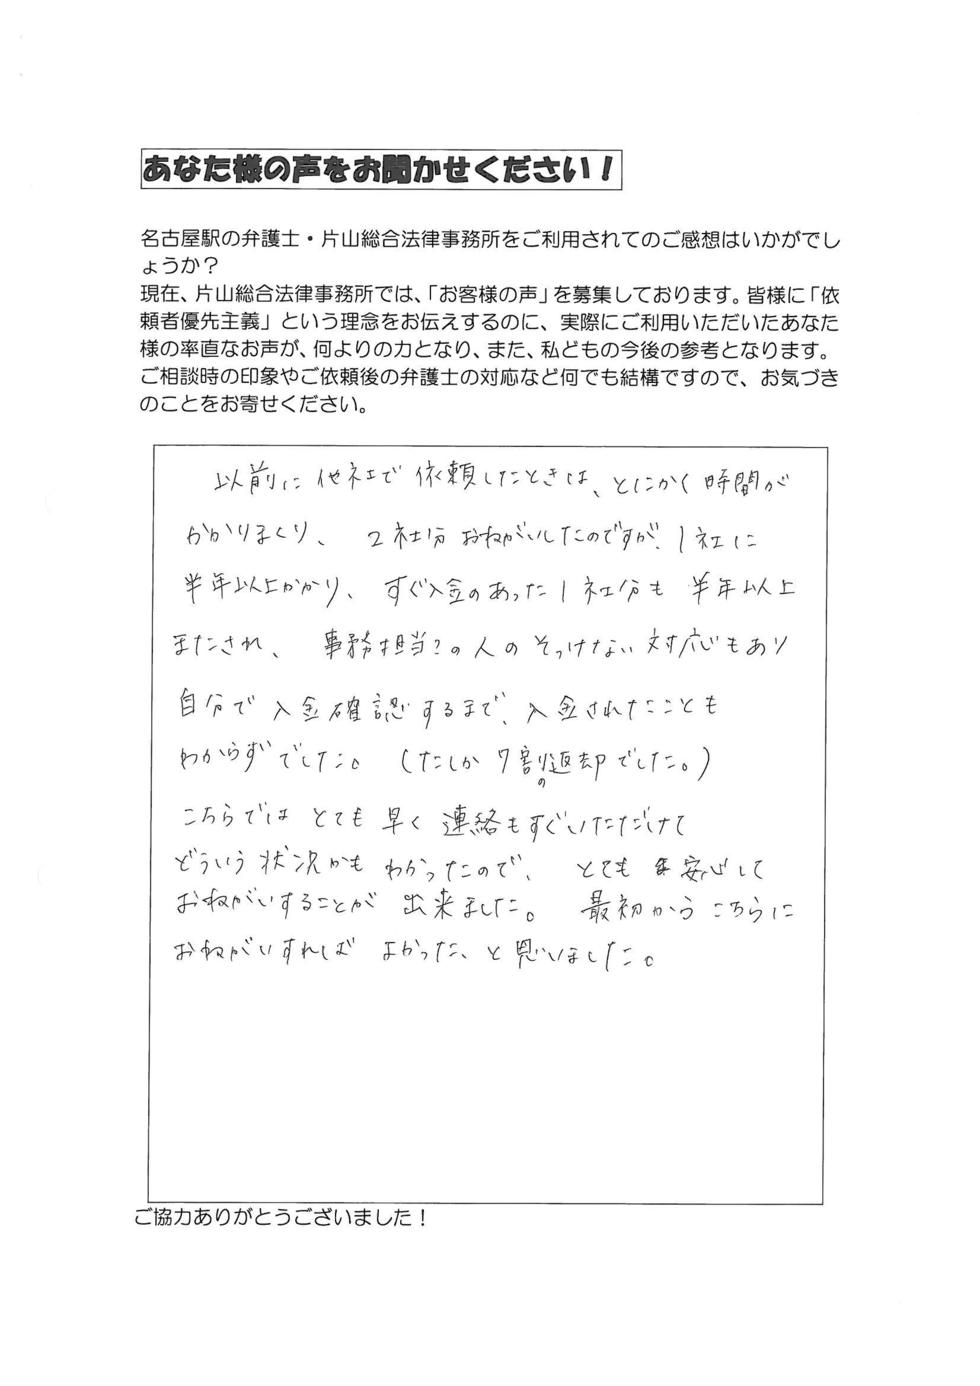 あなた様の声をお聞かせください！
名古屋駅の弁護士・片山総合法律事務所をご利用されてのご感想はいかがでし
ょうか？
現在、片山総合法律事務所では、「お客様の声」を募集しております。皆様に「依
頼者優先主義」という理念をお伝えするのに、実際にご利用いただいたあなた
様の率直なお声が、何よりの力となり、また、私どもの今後の参考となります。
ご相談時の印象やご依頼後の弁護士の対応など何でも結構ですので、お気づき
のことをお寄せください。
以前に他社で依頼したときは、とにかく時間が
かかりまくり、2社分おねがいしたのですが、1社に
半年以上かかり、すぐ入金のあった1社分も半年以上
またされ、事務担当？の人のそっけない対応もあり
自分で入金確認するまで、入金されたことも
わからずでした。（たしか7割の返却でした。）
こちらではとても早く連絡もすぐいただけて
どういう状況かもわかったので、とても安心して
おねがいすることが出来ました。最初からこちらに
おねがいすればよかった、と思いました。
ご協力ありがとうございました！